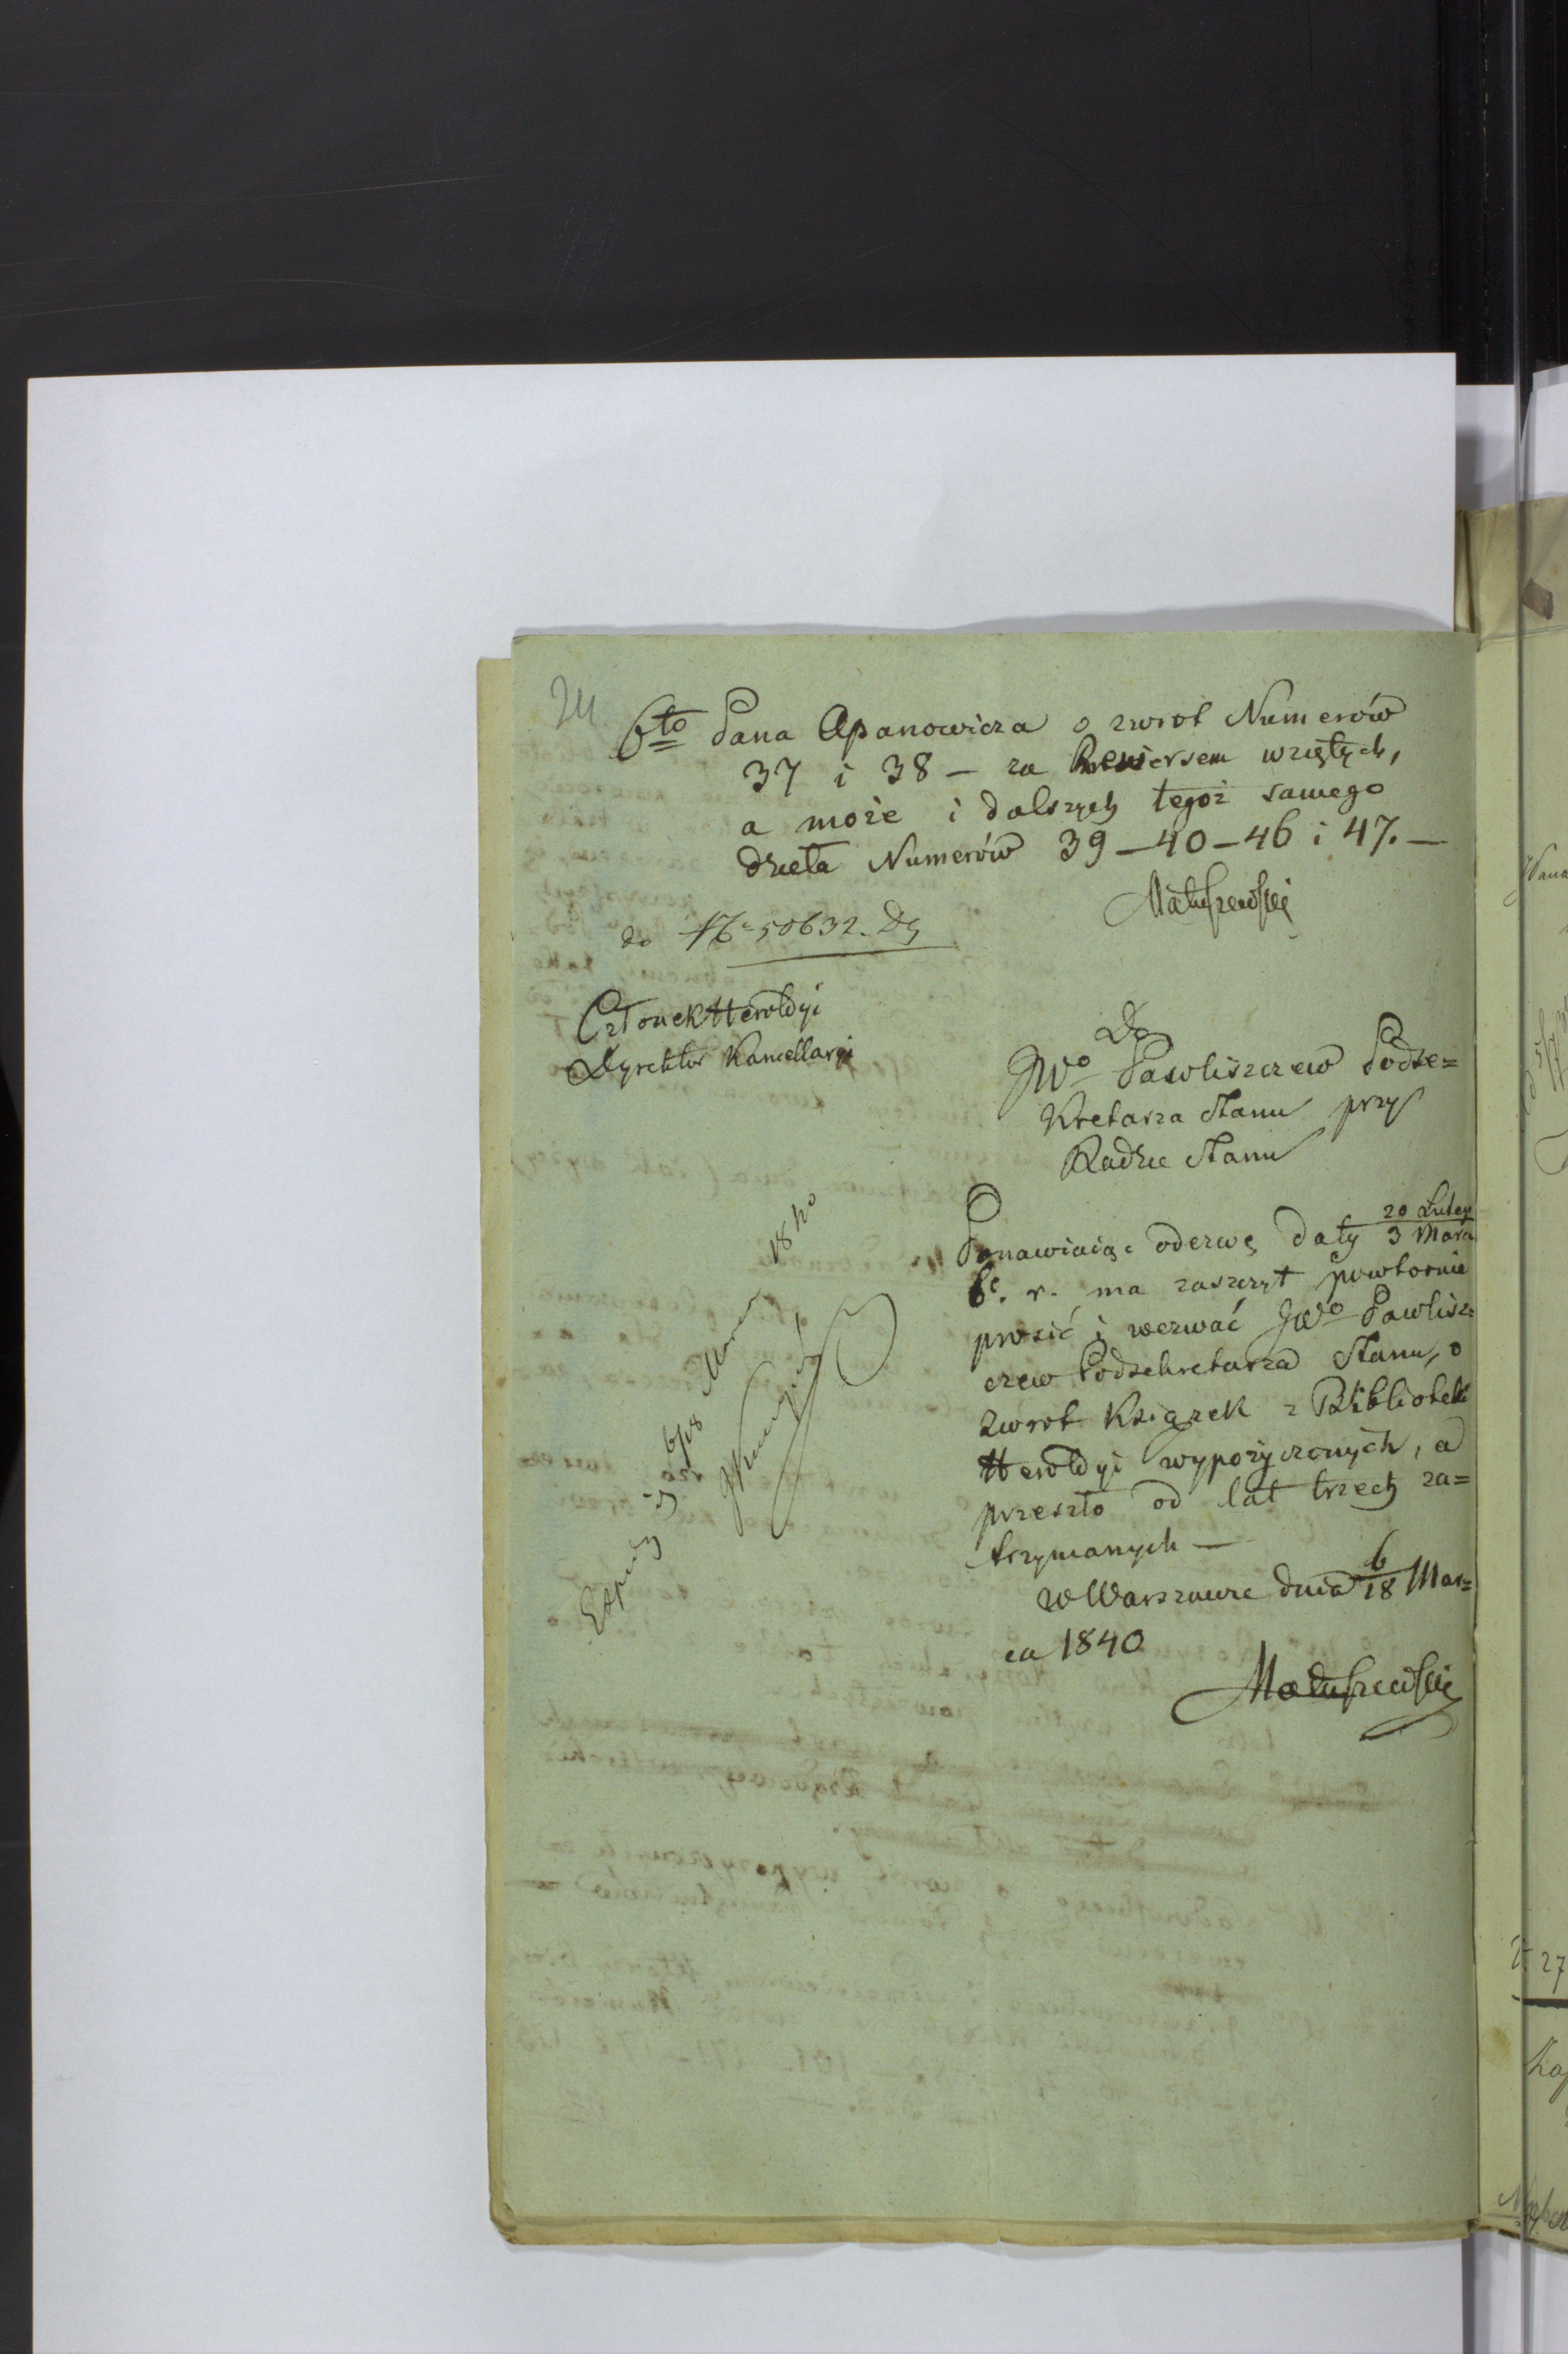 6to Pana Apanowicza o zwrot Numerów
37 i 38 – za Rewersem wziętych,
a może i dalszych tegoż samego
dzieła Numerów 39 – 40 – 46 i 47. –
Matuszewski
do No 50632. Dz
Członek Heroldyi
Dyrektor Kancellaryi
Do
JWo Pawliszczew Podse=
kretarza Stanu przy
Radzie Stanu
Ponawiając odezwę daty 20 Lutego / 3 Marca
b. r. ma zaszczyt powtórnie
prosić i wezwać JWo Pawlisz=
czew Podsekretarza Stanu, o
zwrot Książek z Biblioteki
Heroldyi wypożyczonych, a
przeszło od lat trzech za=
trzymanych –
w Warszawie dnia 6/18 Mar=
ca 1840
Matuszewski
6/18 Marca 1840